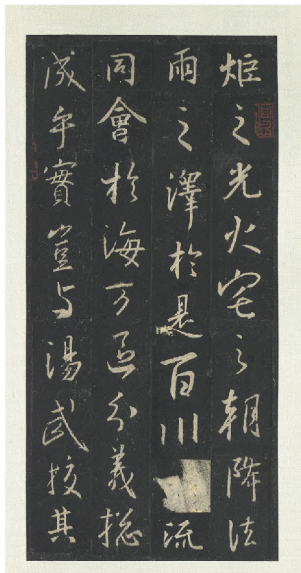 炬之光火宅之朝降法
雨之澤於是百川流
同會於海万區分義揔
成乎實豈与湯武挍其